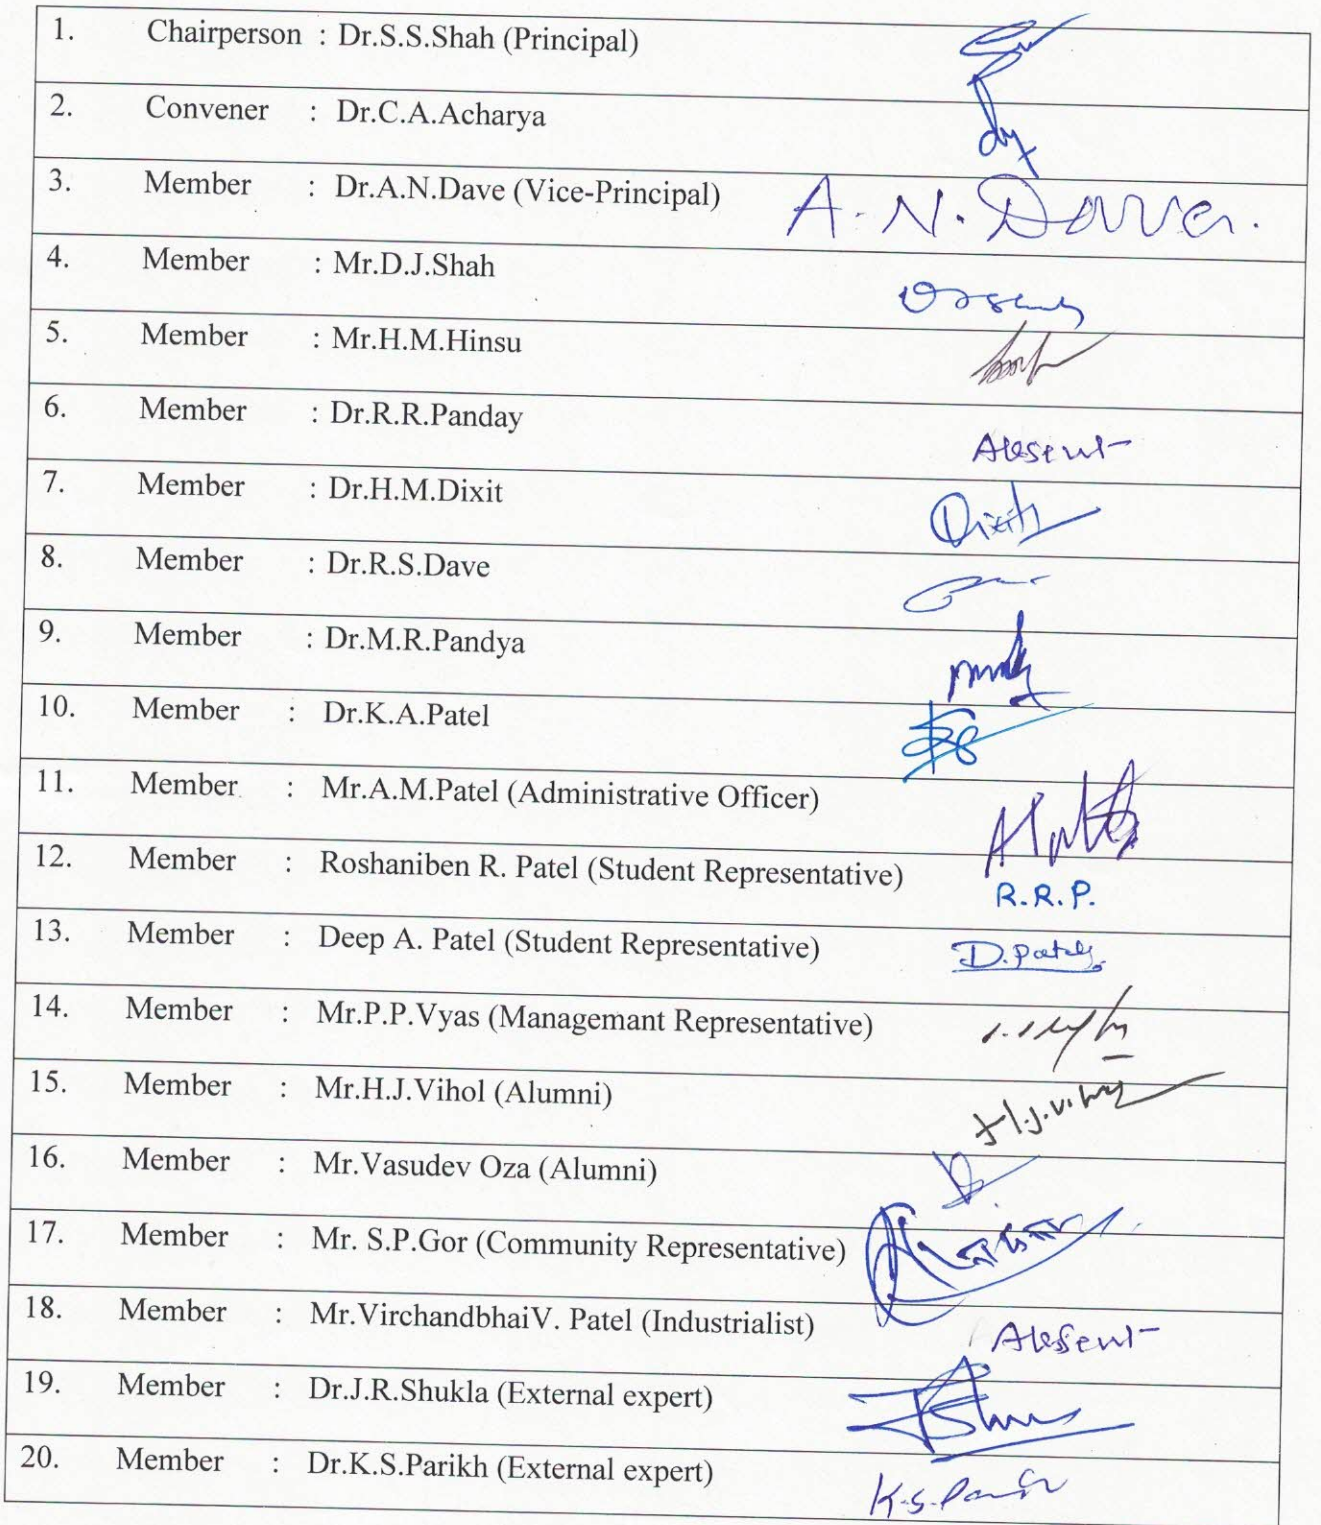 1. Chairperson : Dr.S.S.Shah (Principal)
2. Convener : Dr.C.A.Acharya
3. Member : Dr.A.N.Dave (Vice-Principal) A. N. Dave.
4. Member : Mr.D.J.Shah
5. Member : Mr.H.M.Hinsu
6. Member : Dr.R.R.Panday Absent
7. Member : Dr.H.M.Dixit Dixit
8. Member : Dr.R.S.Dave
9. Member : Dr.M.R.Pandya
10. Member : Dr.K.A.Patel
11. Member : Mr.A.M.Patel (Administrative Officer)
12. Member : Roshaniben R. Patel (Student Representative) R.R.P.
13. Member : Deep A. Patel (Student Representative) D.Patel
14. Member : Mr.P.P.Vyas (Managemant Representative)
15. Member : Mr.H.J.Vihol (Alumni) H.J.Vihol
16. Member : Mr.Vasudev Oza (Alumni)
17. Member : Mr. S.P.Gor (Community Representative)
18. Member : Mr.VirchandbhaiV. Patel (Industrialist) Absent
19. Member : Dr.J.R.Shukla (External expert)
20. Member : Dr.K.S.Parikh (External expert) K.S.Parikh